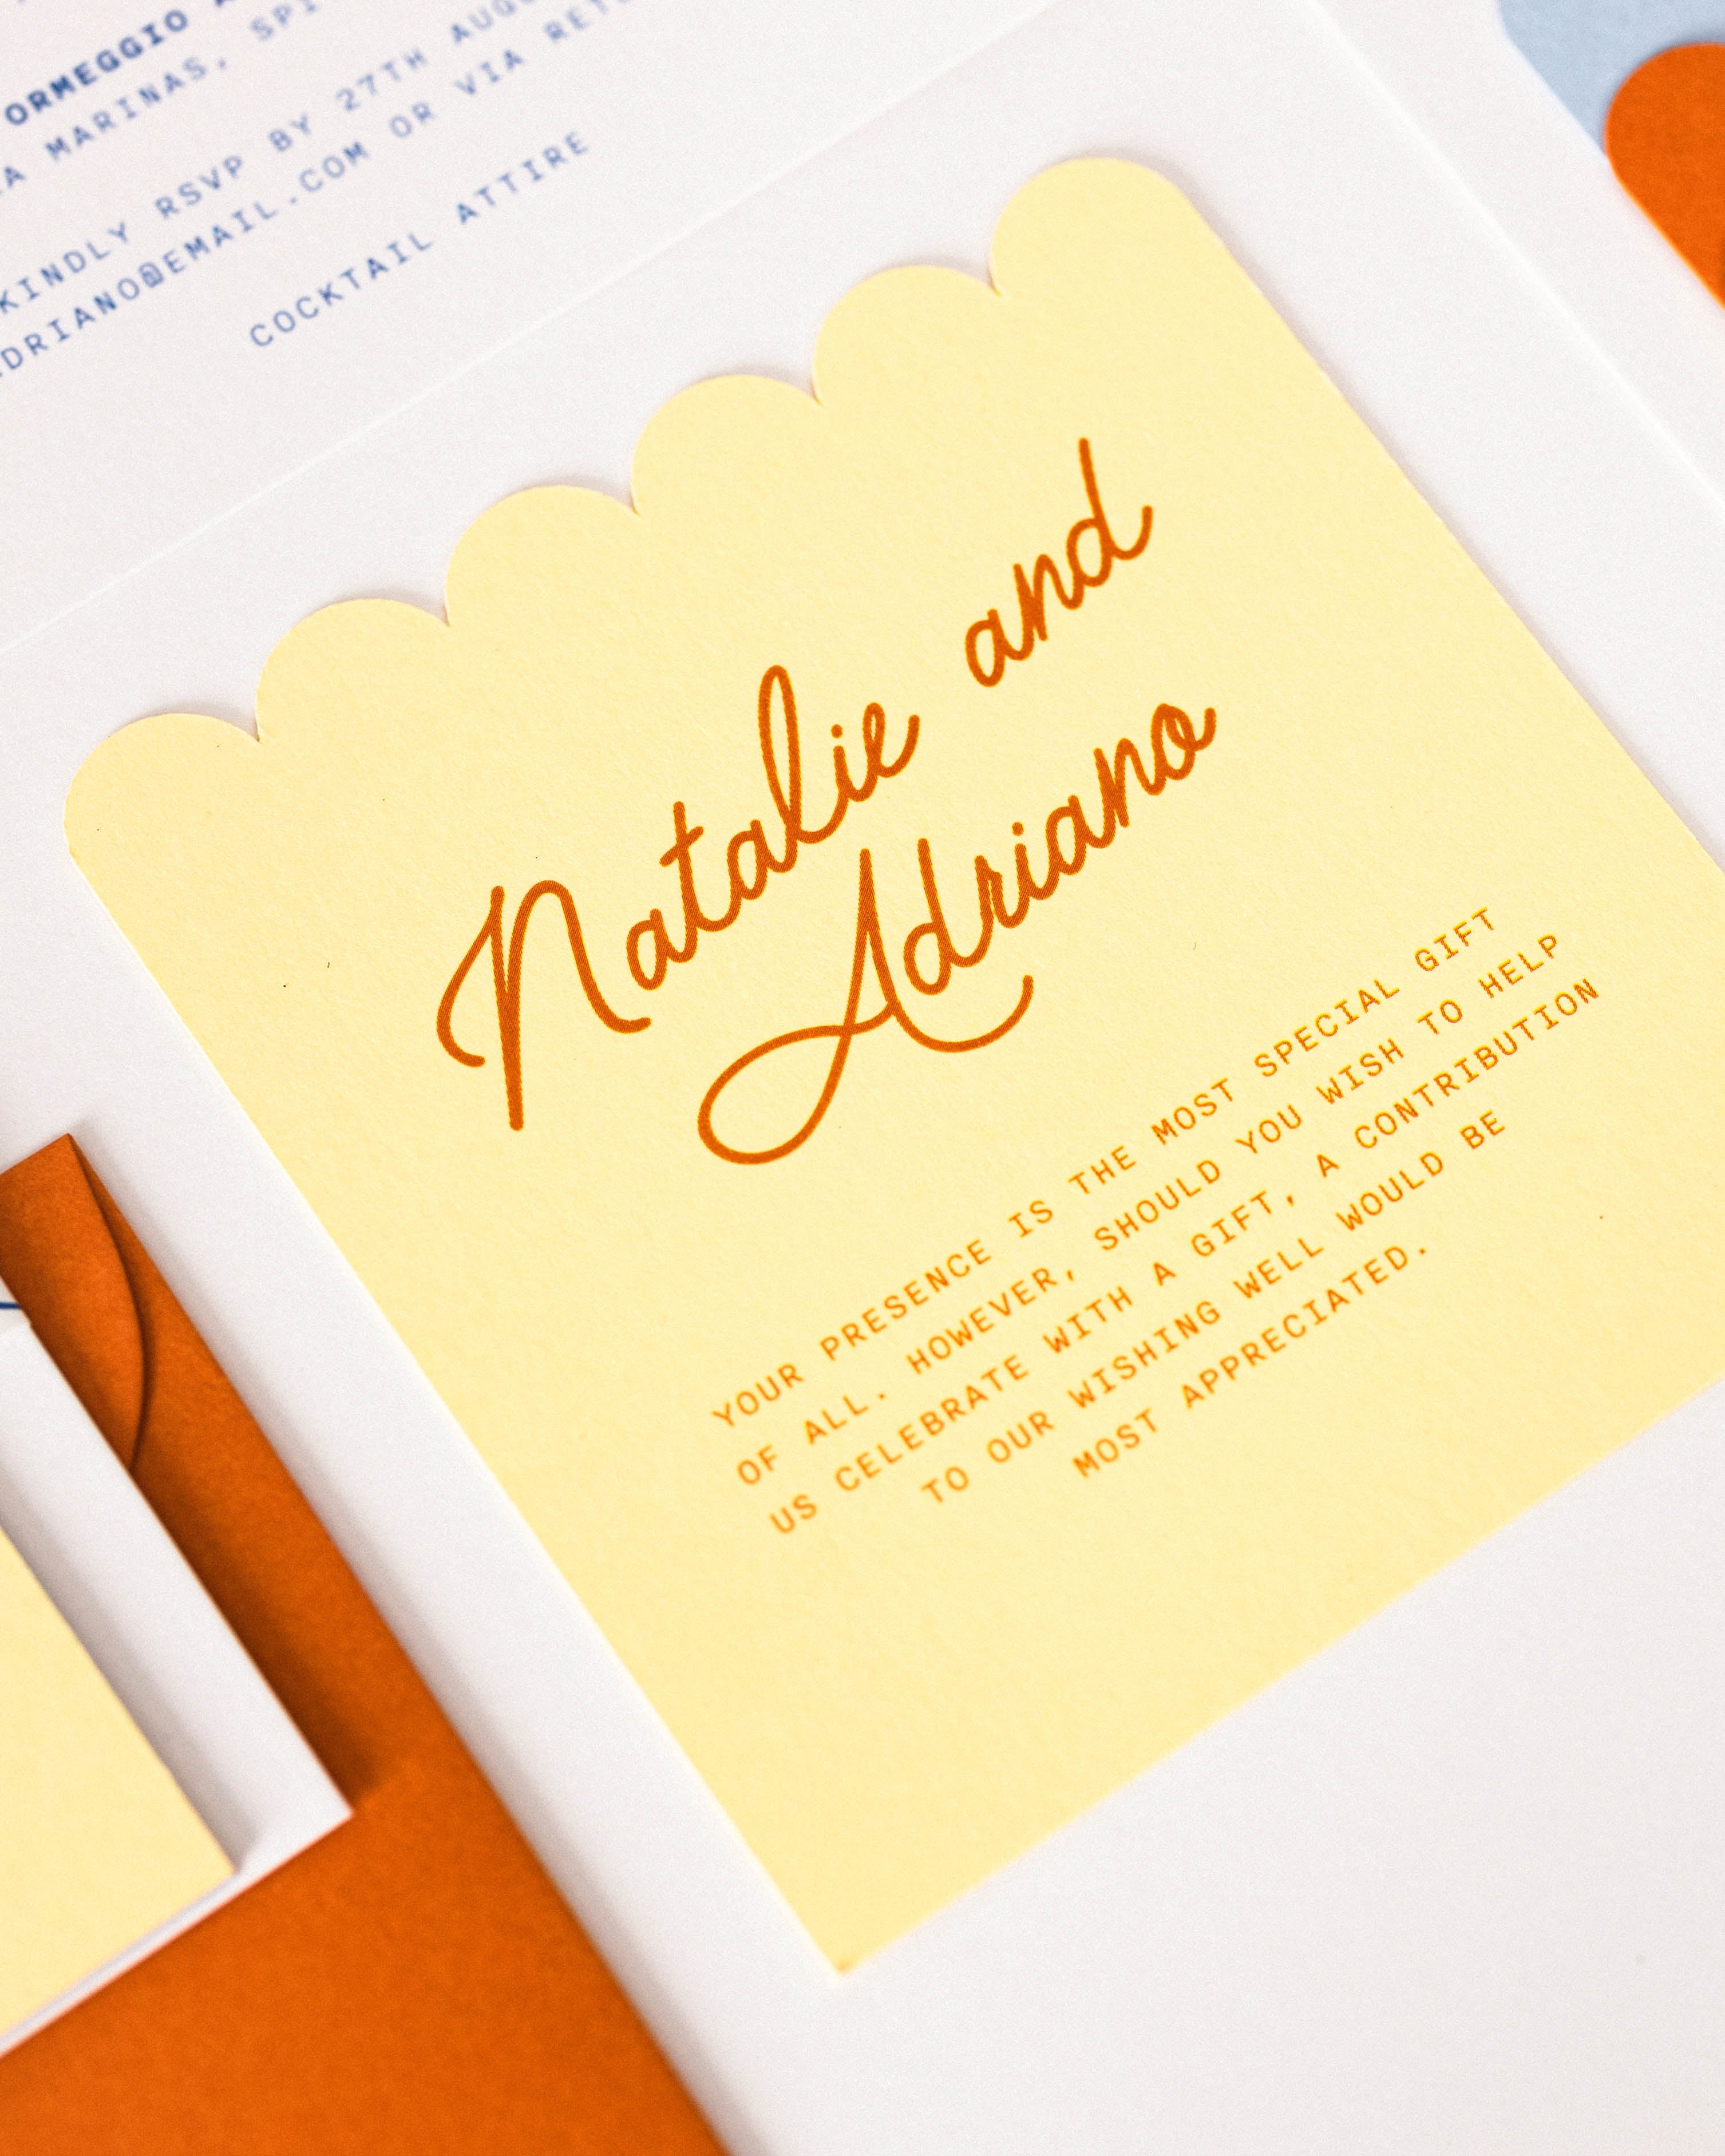 ORMEGGIO
MARINAS,
KINDLY RSVP BY 27TH
DRIANO@EMAIL.COM OR VIA
COCKTAIL ATTIRE
Natalie and
Adriano
YOUR PRESENCE IS THE MOST SPECIAL GIFT
OF ALL. HOWEVER, SHOULD YOU WISH TO HELP
US CELEBRATE WITH A GIFT, A CONTRIBUTION
TO OUR WISHING WELL WOULD BE
MOST APPRECIATED.